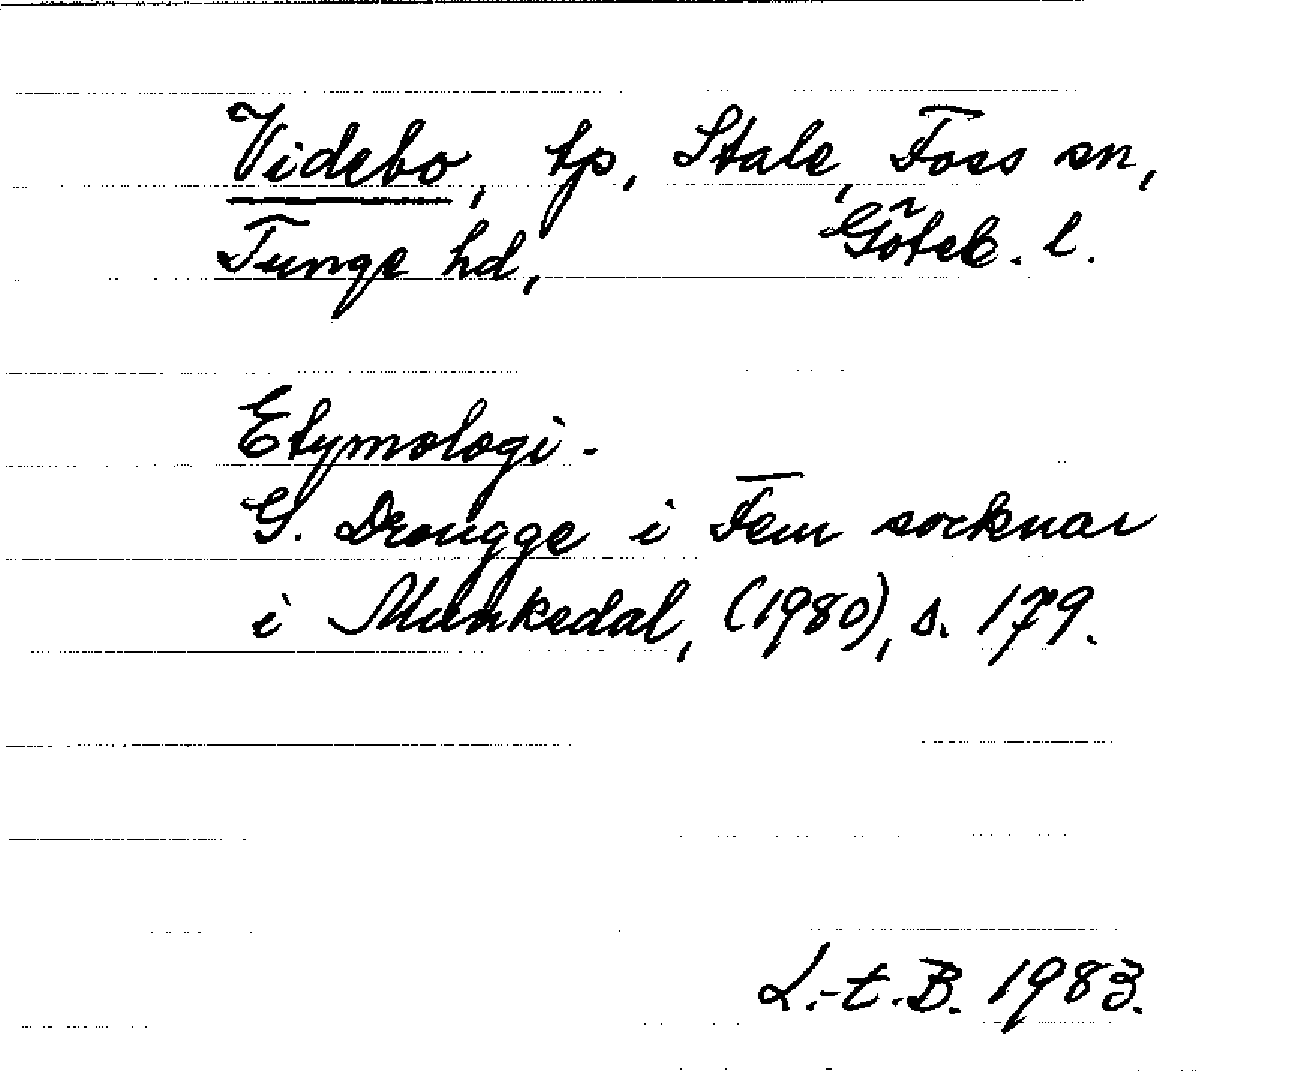 Videbo, tp, Stale, Foss sn,
Tunge hd, Göteb. l.
Etymologi -
G. Drougge i Fem socknar
i Munkedal, (1980), s. 179.
L.-t.B. 1983.